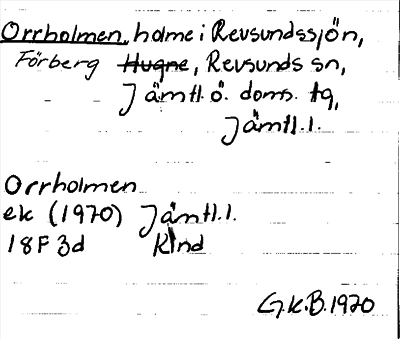 Orrholmen, holme i Revsundssjön,
Förberg Hugne, Revsunds sn,
Jämtl. ö. doms. tg,
Jämtl. l.
Orrholmen
ek (1970) Jämtl. l.
18F 3d KInd
G.K.B. 1970